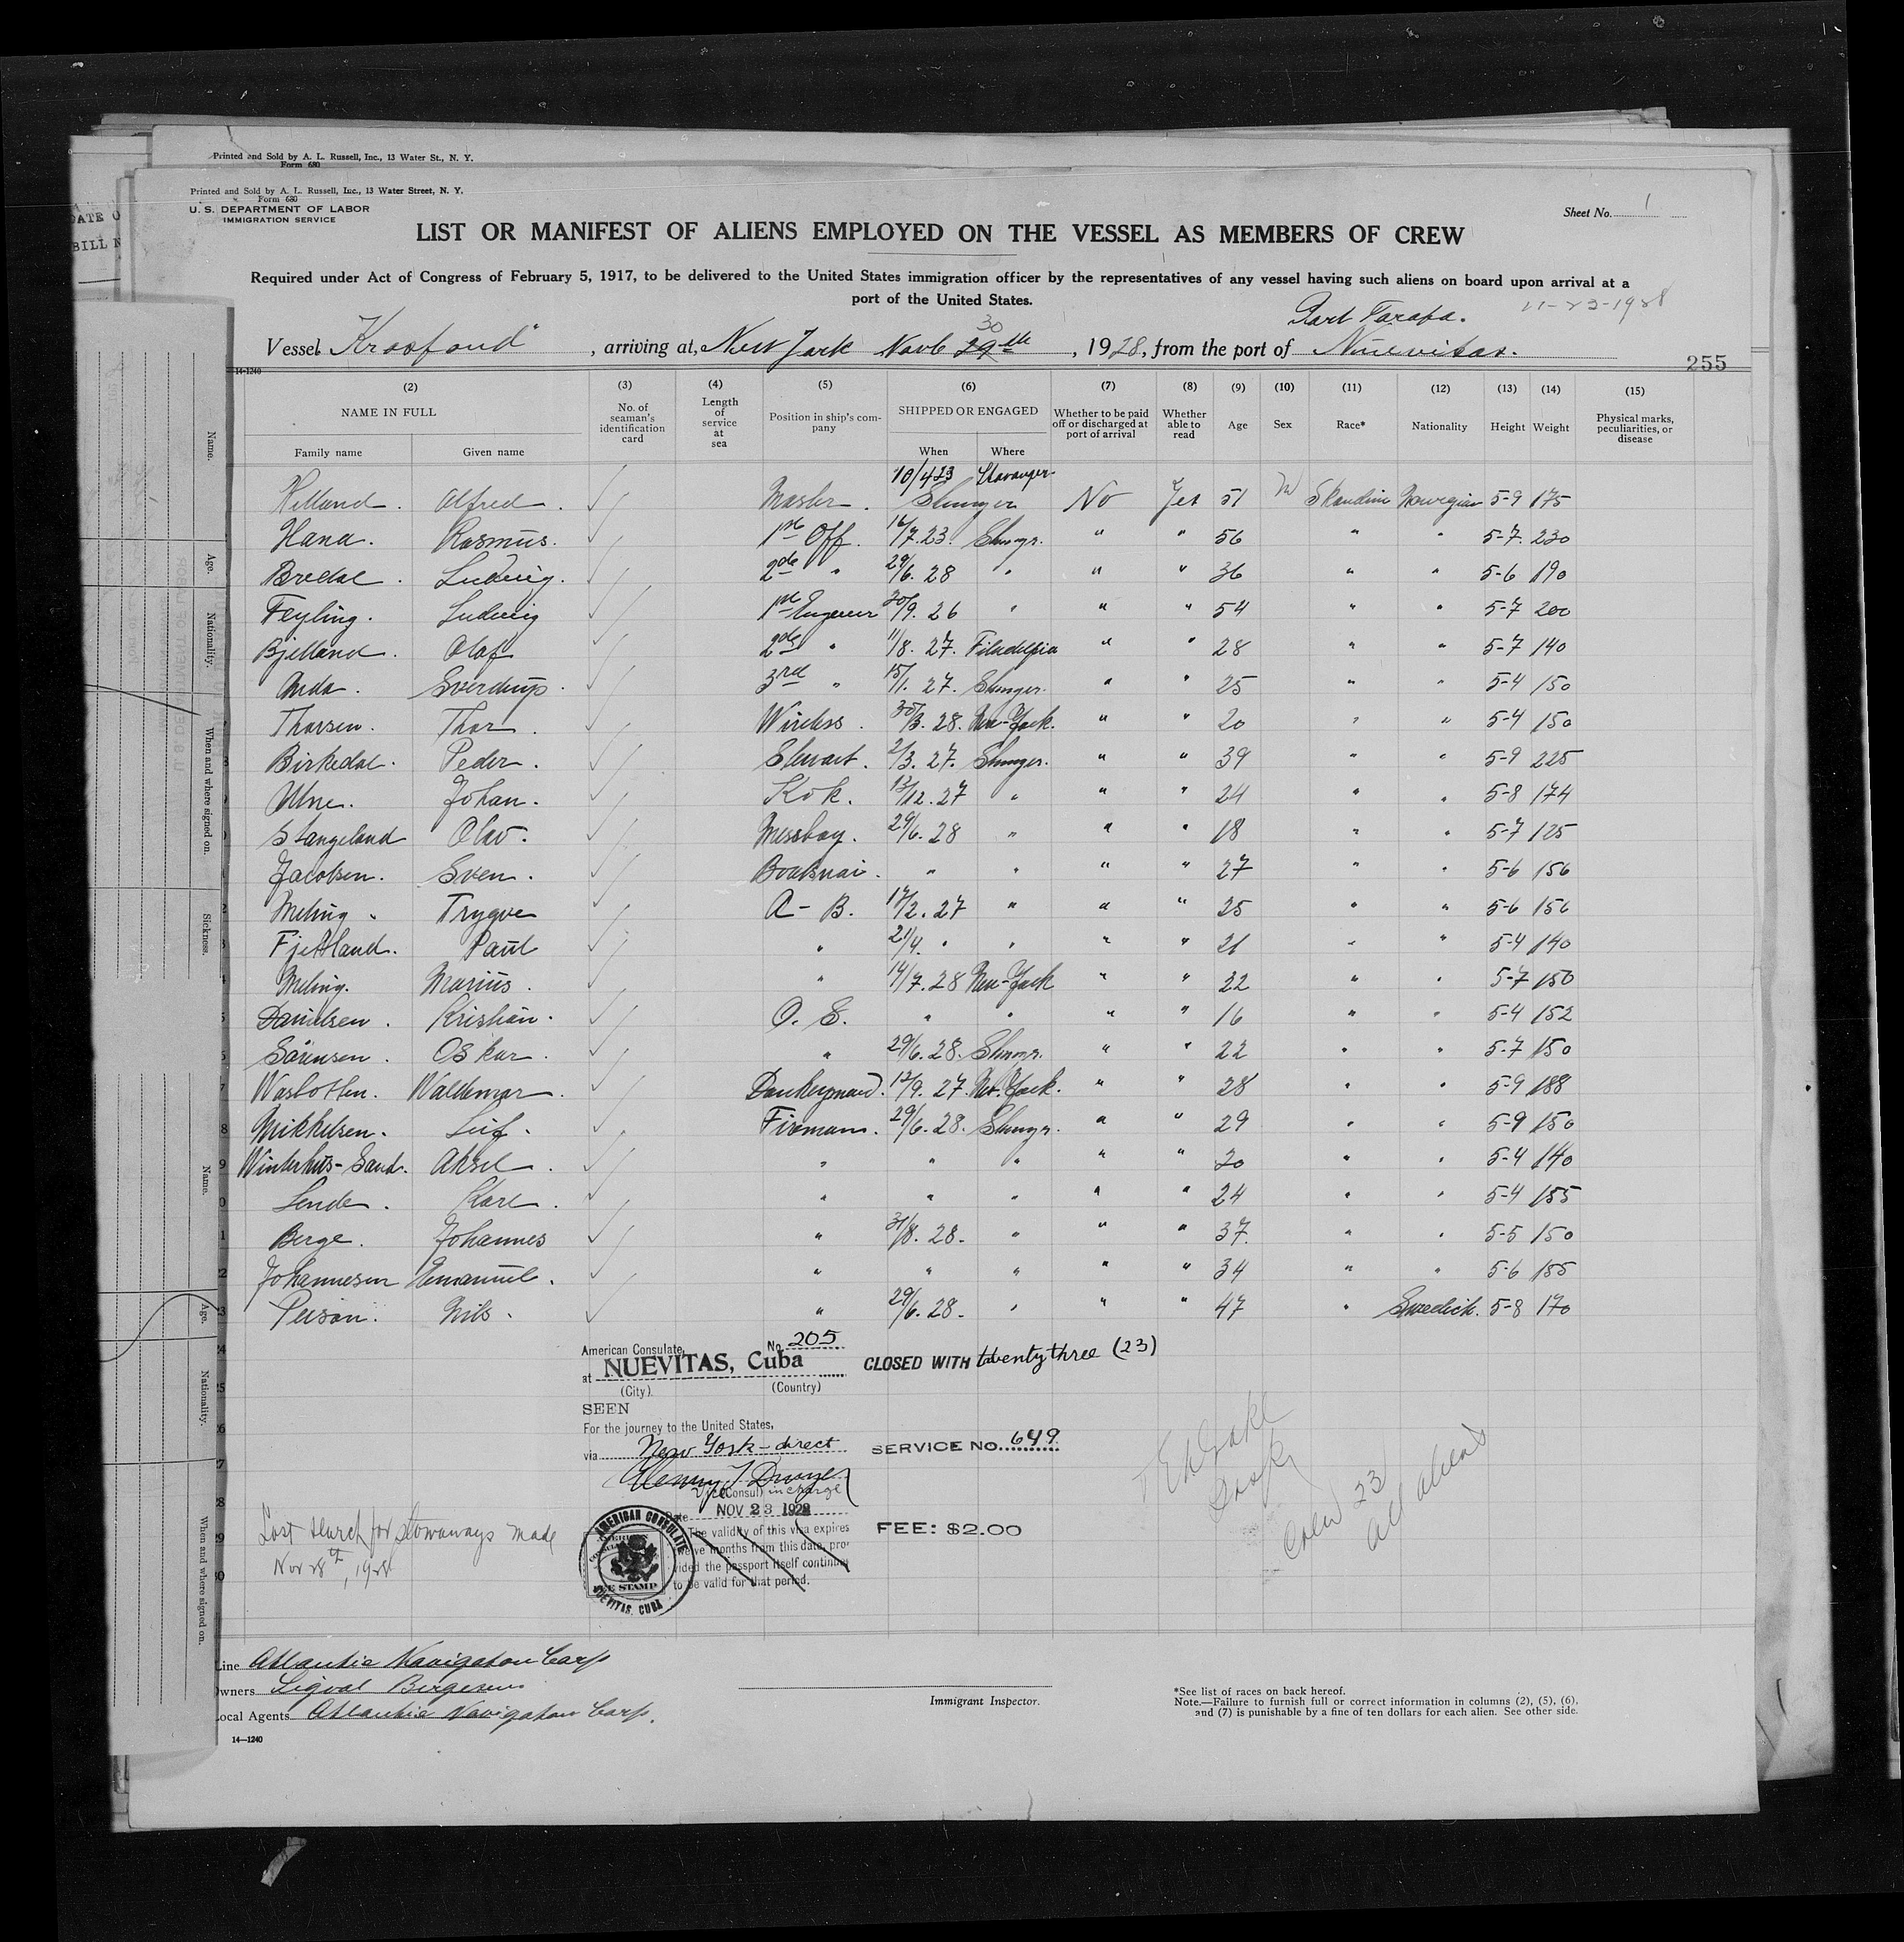 Printed and Sold by A. L. Russell, Inc., 13 Water St., N. Y.
Form 680
Printed and Sold by A. L. Russell, Inc., 13 Water Street, N. Y.
Form 680
U. S. DEPARTMENT OF LABOR
IMMIGRATION SERVICE
Sheet No. 1
LIST OR MANIFEST OF ALIENS EMPLOYED ON THE VESSEL AS MEMBERS OF CREW
Required under Act of Congress of February 5, 1917, to be delivered to the United States immigration officer by the representatives of any vessel having such aliens on board upon arrival at a
port of the United States.
Port Tarafa. 11-23-1928
30
Vessel Krosfond , arriving at, New York Novb 29th , 1928, from the port of Nuevitas.
255
14-1240
(2) (3) (4) (5) (6) (7) (8) (9) (10) (11) (12) (13) (14) (15)
NAME IN FULL No. of seaman's identification card Length of service at sea Position in ship's company SHIPPED OR ENGAGED Whether to be paid off or discharged at port of arrival Whether able to read Age Sex Race* Nationality Height Weight Physical marks, peculiarities, or disease
Family name Given name When Where
10/4 23 Stavanger
Kelland. Alfred. Master. No Yes 51 M Skandine Norwegian 5-9 175
Hana. Rasmus. 1st Off. 16/7. 23. " " 56 " " 5-7. 230
Bredal. Ludwig. 2de " 29/6. 28 " " " 36 " " 5-6 190
Feyling. Ludwig 1st 20/9. 26 " " " 54 " " 5-7 200
Bjelland. Olaf 2de " 11/8. 27. Filadelfia " " 28 " " 5-7 140
Sverdrup. 3rd " 15/1. 27. " " 25 " " 5-4 150
Thorsen. Thor. Wireless. 30/3. 28. New-York. " " 20 " " 5-4 150
Birkedal. Peder. Stewart. 2/3. 27. " " 39 " " 5-9 225
Johan. Kok. 13/12. 27 " " " 24 " " 5-8 174
Stangeland Olav. Messboy. 29/6. 28 " " " 18 " " 5-7 125
Jacobsen. Sven. " " " " 27 " " 5-6 156
Meling " Trygve A-B. 17/2. 27 " " " 25 " " 5-6 156
Fjetland. Paul " 21/4. " " " " 21 " " 5-4 140
Meling. Marius. " 14/7. 28 New-York " " 22 " " 5-7 150
Danielsen. Kristian. O. S. " " " " 16 " " 5-4 152
Sörensen. Oskar. " 29/6. 28. " " 22 " " 5-7 150
Wasbotten. Waldemar. Donkeymand. 12/9. 27. New-York. " " 28 " " 5-9 188
Mikkelsen. Leif. Firemann. 29/6. 28. " " 29 " " 5-9 150
Aksel. " " " " " 20 " " 5-4 140
Lende. Karl. " " " " " 24 " " 5-4 155
Berge. Johannes " 31/8. 28. " " " 37. " " 5-5 150
Johannesen Emanuel. " " " " " 34 " " 5-6 155
Person. Nils. " 29/6. 28. " " " 47 " Swedich. 5-8 170
American Consulate, No. 205
at NUEVITAS, Cuba CLOSED WITH twenty three (23)
(City) (Country)
SEEN
For the journey to the United States,
via New York-direct SERVICE NO. 649
Vice Consul in charge
Date NOV 23 1928
FEE: $2.00
The validity of this visa expires
twelve months from this date, pro-
vided the passport itself continues
to be valid for that period.
AMERICAN CONSULATE
FEE STAMP
NUEVITAS, CUBA
Last search for stowaways made
Nov 28th, 1928
Crew 23
all aliens
Line Atlantic Navigation Corp
Owners Sigval Bergesen
Local Agents Atlantic Navigation Corp.
Immigrant Inspector.
*See list of races on back hereof.
Note.—Failure to furnish full or correct information in columns (2), (5), (6),
and (7) is punishable by a fine of ten dollars for each alien. See other side.
14—1240
Name.
Age.
Nationality.
When and where signed on.
Sickness.
Name.
Age.
Nationality.
When and where signed on.